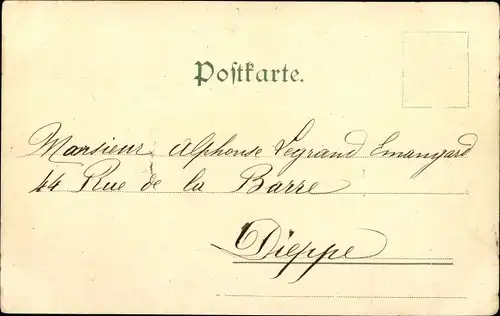 Postkarte.
Monsieur Alphonse Legrand Emangard
44 Rue de la Barre
Dieppe